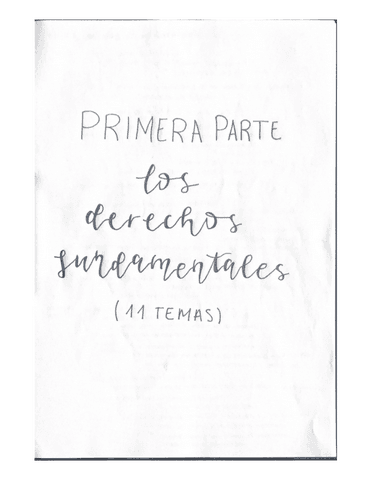 PRIMERA PARTE
los
derechos
fundamentales
(11 TEMAS)